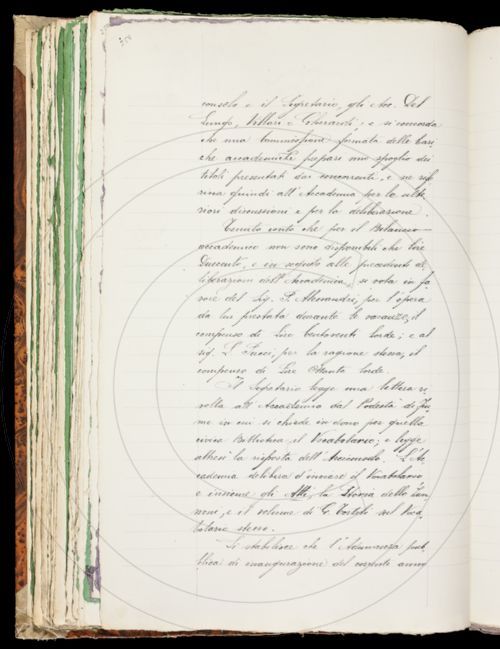 consolo e il Segretario, gli Acc. Del
Lungo, Villari e Gherardi; e si concorda
che una Commissione formata delle Cari
che accademiche prepari uno spoglio dei
titoli presentati dai concorrenti, e ne rife
risca quindi all'Accademia per le ulte
riori discussioni e per la deliberazione.
Tenuto conto che per il Bilancio
accademico non sono disponibili che lire
Duecento, e in seguito alle precedenti de
liberazioni dell'Accademia, si vota in fa
vore del Sig. P. Alessandri, per l'opera
da lui prestata durante le vacanze, il
compenso di Lire Centoventi lorde; e al
sig. L. per la ragione stessa, il
compenso di Lire Ottanta lorde.
Il Segretario legge una lettera ri
volta all'Accademia dal Podestà di Fiu
me in cui si chiede in dono per quella
civica Biblioteca il Vocabolario; e legge
altresì la risposta dell'Arciconsolo. L'Ac
cademia delibera d'inviare il Vocabolario
e insieme gli Atti, la Storia dello Zan
noni, e il volume di G. Tortoli sul Voca
bolario stesso.
Si stabilisce che l'Adunanza pub
blica di inaugurazione del corrente anno